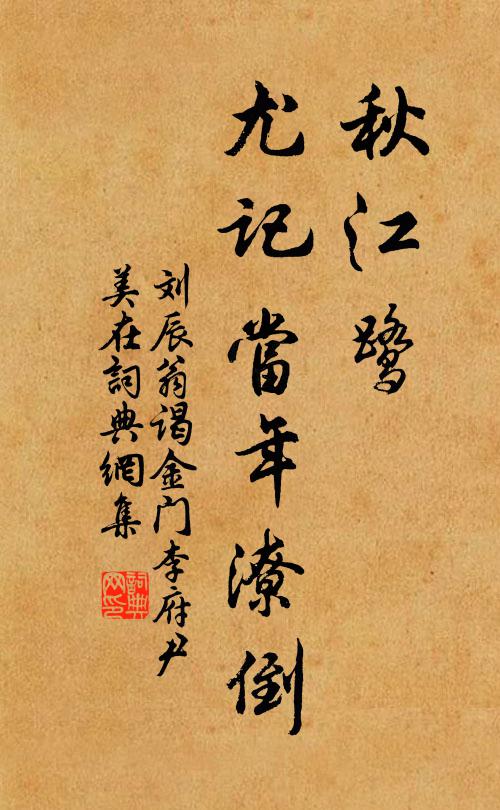 秋江鹭
尤记當年潦倒
刘辰翁谒金门李府尹
美在詞典網集
詞典
网印